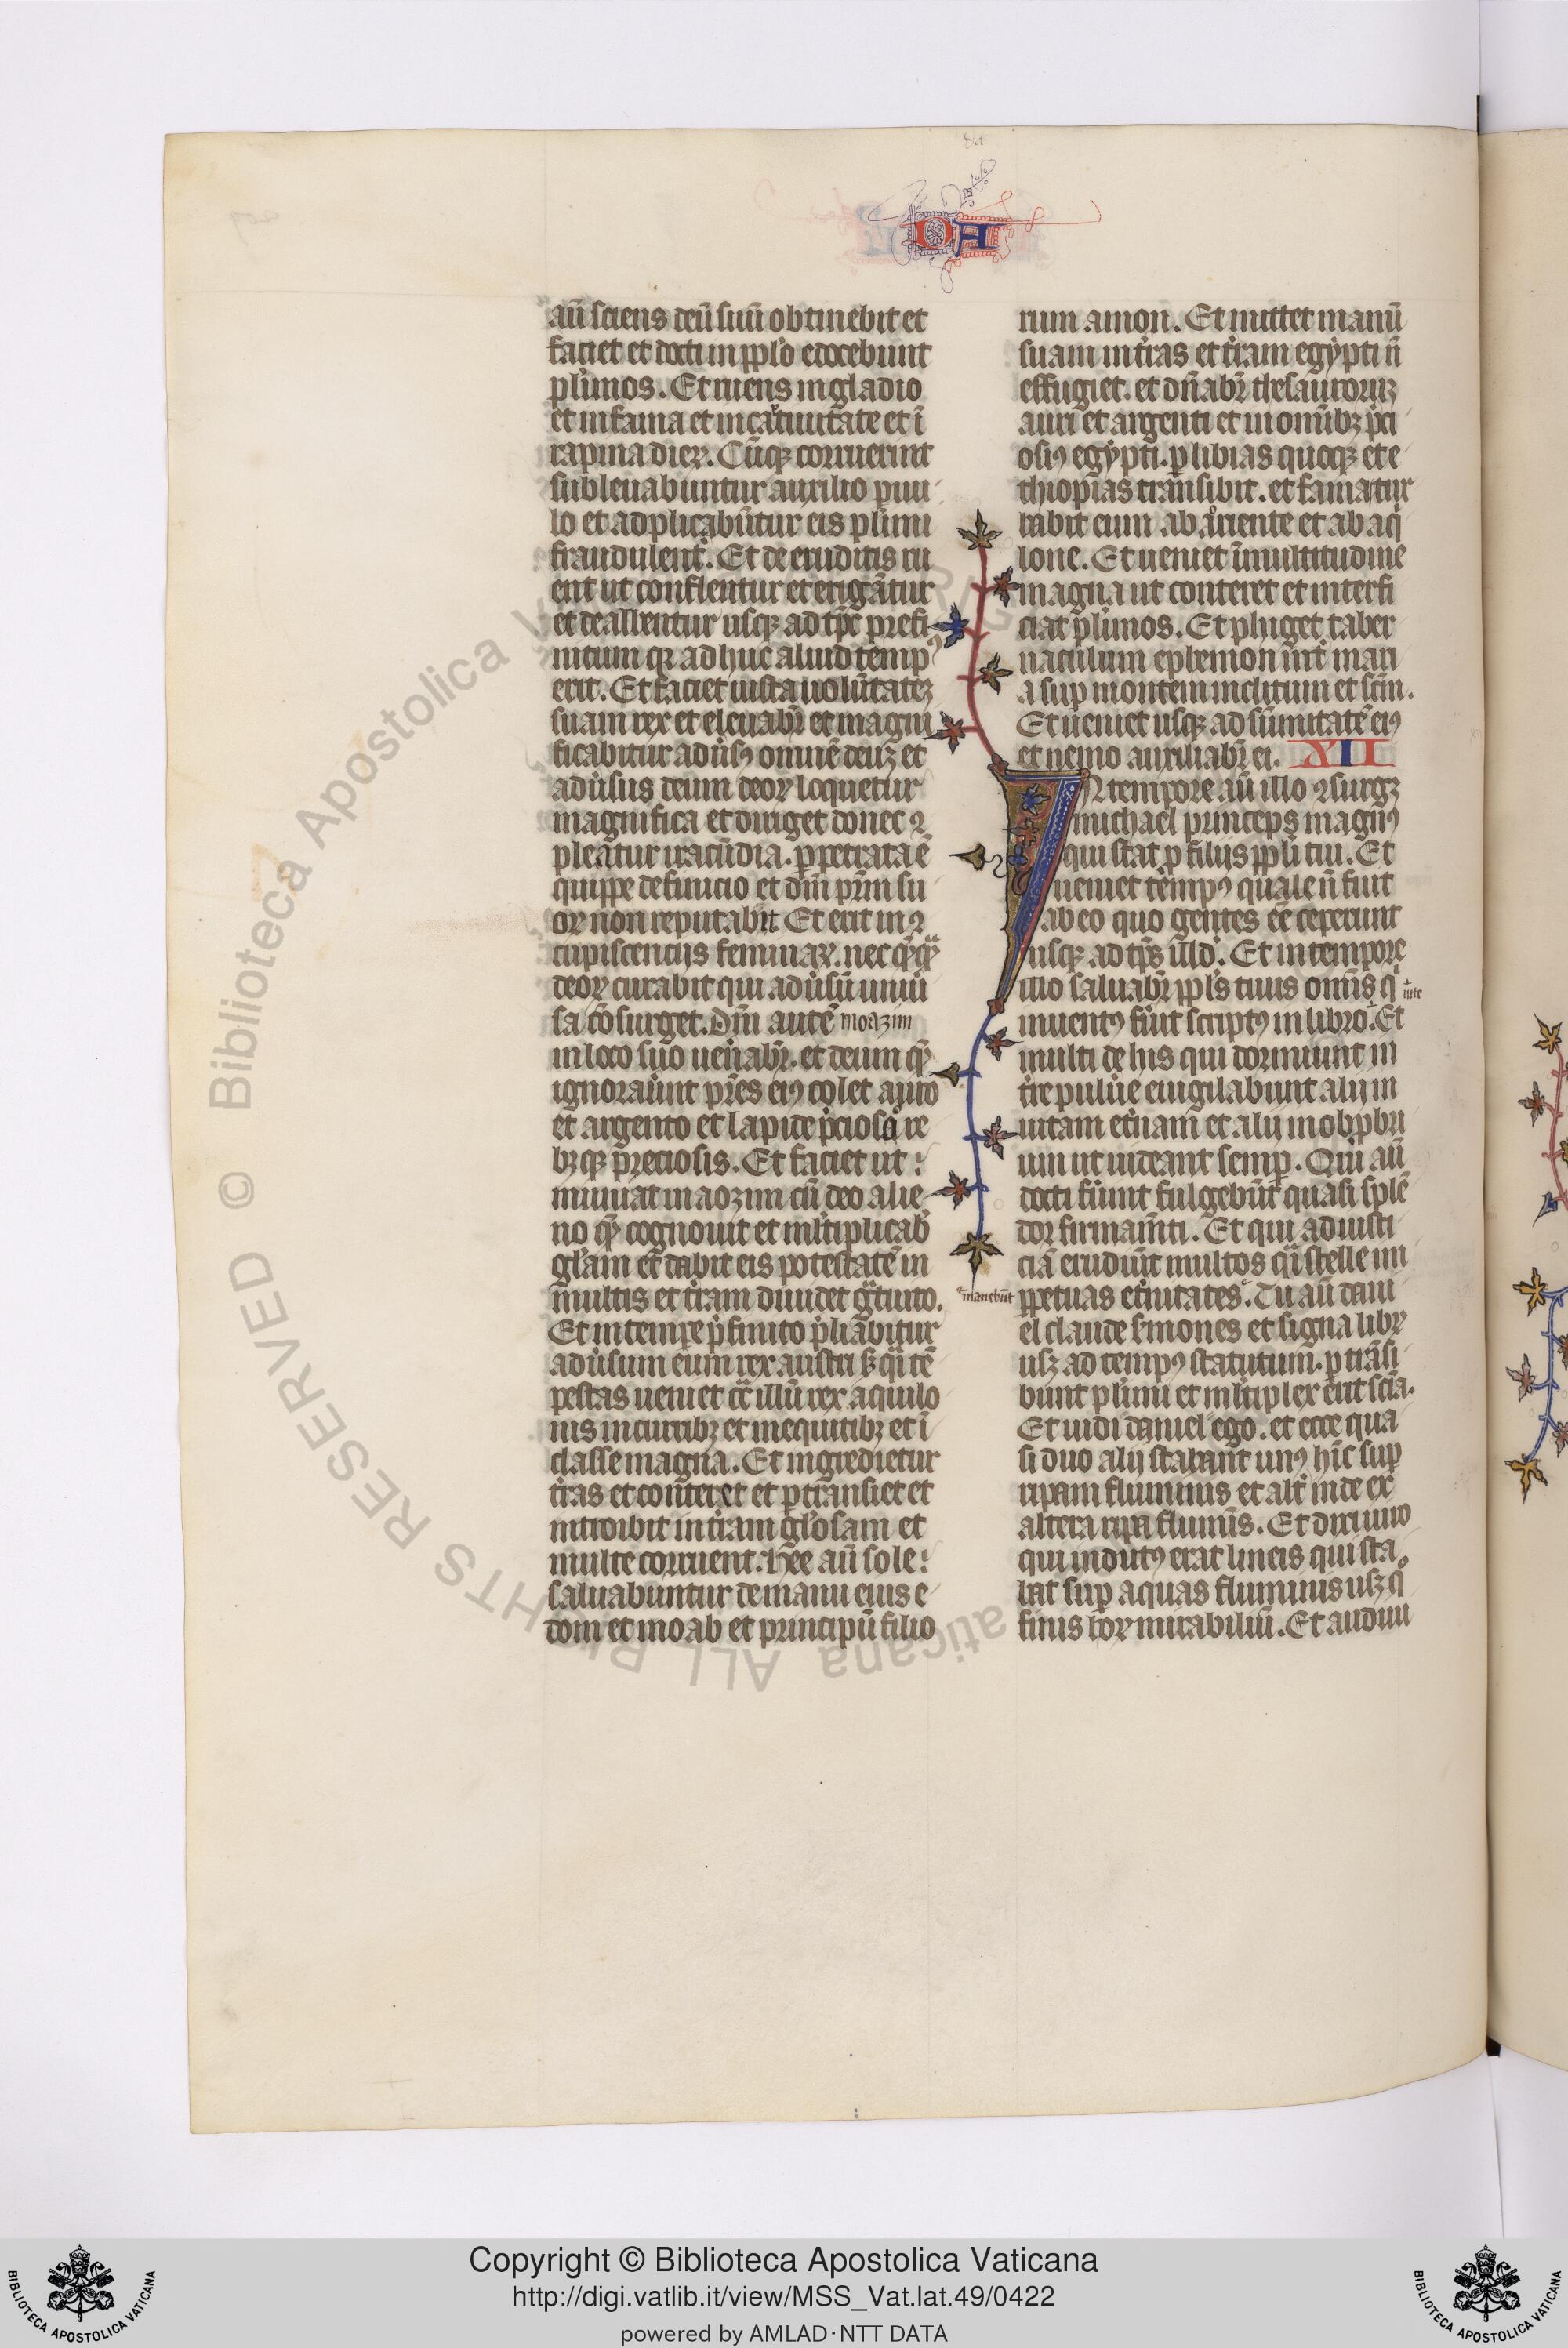 DA
aū sciens deū suū obtinebit et
faciet et docti in pplo edocebunt
plimos. Et ruens in gladio
et in fama et in captiuitate et ī
rapina dieꝝ. Cūqꝫ corruerint
subleuabuntur auxilio paruu
lo et adplicabūtur eis plimi
fraudulent̾. Et de eruditis ru
ent ut conflentur et erigātur
et dealbentur usqꝫ ad tp̄c prefi
nitum qꝛ adhuc aliud tempꝰ
erit. Et faciet iuxta uolūtateꝫ
suam rex et eleuabr̄ et magni
ficabitur adu̾sꝰ omnē deuꝫ et
adu̾sus deum deoꝝ loquetur
magnifica et diriget donec ꝯ
pleātur iracūdia. ꝑpetrata ē
quippe definicio et dm̄ pr̄m su
oꝝ non reputabit Et erit in ꝯ
cupiscencijs feminaꝝ. nec qͣꝗͣ
deoꝝ curabit qui adu̾sū uniu̾
sa cōsurget. Dm̄ autē moazim
in loco suo uen̾abr̄. et deum quē
ignorau̾unt pr̄es eiꝰ colet auro
et argento et lapide p̾cioso re
bꝫqꝫ preciosis. Et faciet ut :
muniat maozim cū deo alie
no quē cognouit et ml̾tiplicab̾
gl̾am et dabit eis potestatē in
multis et t̾ram diuidet gͣtuito.
Et in tempe p̾finito p̾liabitur
adu̾sum eum rex austri ꝫ qͣi tē
pestas ueniet cͣ illū rex aquilo
nis in curribꝫ et in equitibꝫ et ī
classe magna. Et ingredietur
t̾ras et conteret et ꝑtransiet et
introibit in t̾ram gl̾osam et
multe corruent. Hee aū sole :
saluabuntur de manu eius e
dom et moab et principū filio
rum amon. Et mittet manū
suam in t̾ras et t̾ram egypti n̄
effugiet. et dn̄abr̄ thesauroruꝫ
auri et argenti et in omībꝫ p̾ci
osiꝰ egypti. ꝑ libias quoqꝫ et e
thiopias transibit. et fama tur
babit eum ab oriente et ab aqͥ
lone. Et ueniet ī multitudine
magna ut conteret et interfi
ciat plimos. Et ꝑfiget taber
naculum eplemon int̾ mari
a sup montem inclitum et scm̄.
Et ueniet usqꝫ ad sūmitatē eiꝰ
et nemo auxiliabr̄ ei. XII
IN tempore aū illo ꝯsurgꝫ
michael princeps magnꝰ
qui stat ꝓ filijs ppli tui. Et
ueniet tempꝰ quale n̄ fuit
ab eo quo gentes eē ceperunt
usqꝫ ad tp̄s illd̾. Et in tempore
illo saluabr̄ ppl̾s tuus omīs qͥ
inuentꝰ fu̾it scriptꝰ in libro. Et
multi de his qui dormiunt in
t̾re pulu̾e euigilabunt alij in
uitam et̾nam et alij in obꝓbri
um ut uideant semꝑ. Qui aū
docti fu̾int fulgebūt quasi splē
dor firmam̄ti. Et qui ad iusti
ciā erudiūt multos qͣi stelle in
manebūt
ꝑpetuas et̾nitates. Tu aū dani
el claude s̾mones et signa libꝝ
usꝫ ad tempꝰ statutum. ꝑtrāsi
bunt plimi et ml̾tiplex erit sci̾a.
Et uidi daniel ego. et ecce qua
si duo alij stabant unꝰ hīc sup
ripam fluminis et alt̾ inde ex
altera ripa flumīs. Et dixi uiro
qui indutꝰ erat lineis qui sta
bat sup aquas fluminis usꝫ qͦ
finis hoꝝ mirabiliū. Et audiui
© Biblioteca Apostolica Vaticana ALL RIGHTS RESERVED
Copyright © Biblioteca Apostolica Vaticana
http://digi.vatlib.it/view/MSS_Vat.lat.49/0422
powered by AMLAD·NTT DATA
BIBLIOTECA APOSTOLICA VATICANA
BIBLIOTECA APOSTOLICA VATICANA